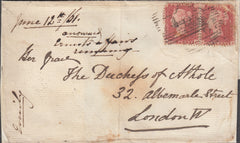 June 12th /61.
answered
Her Grace
The Duchess of Athole
32. Albemarle Street
London W